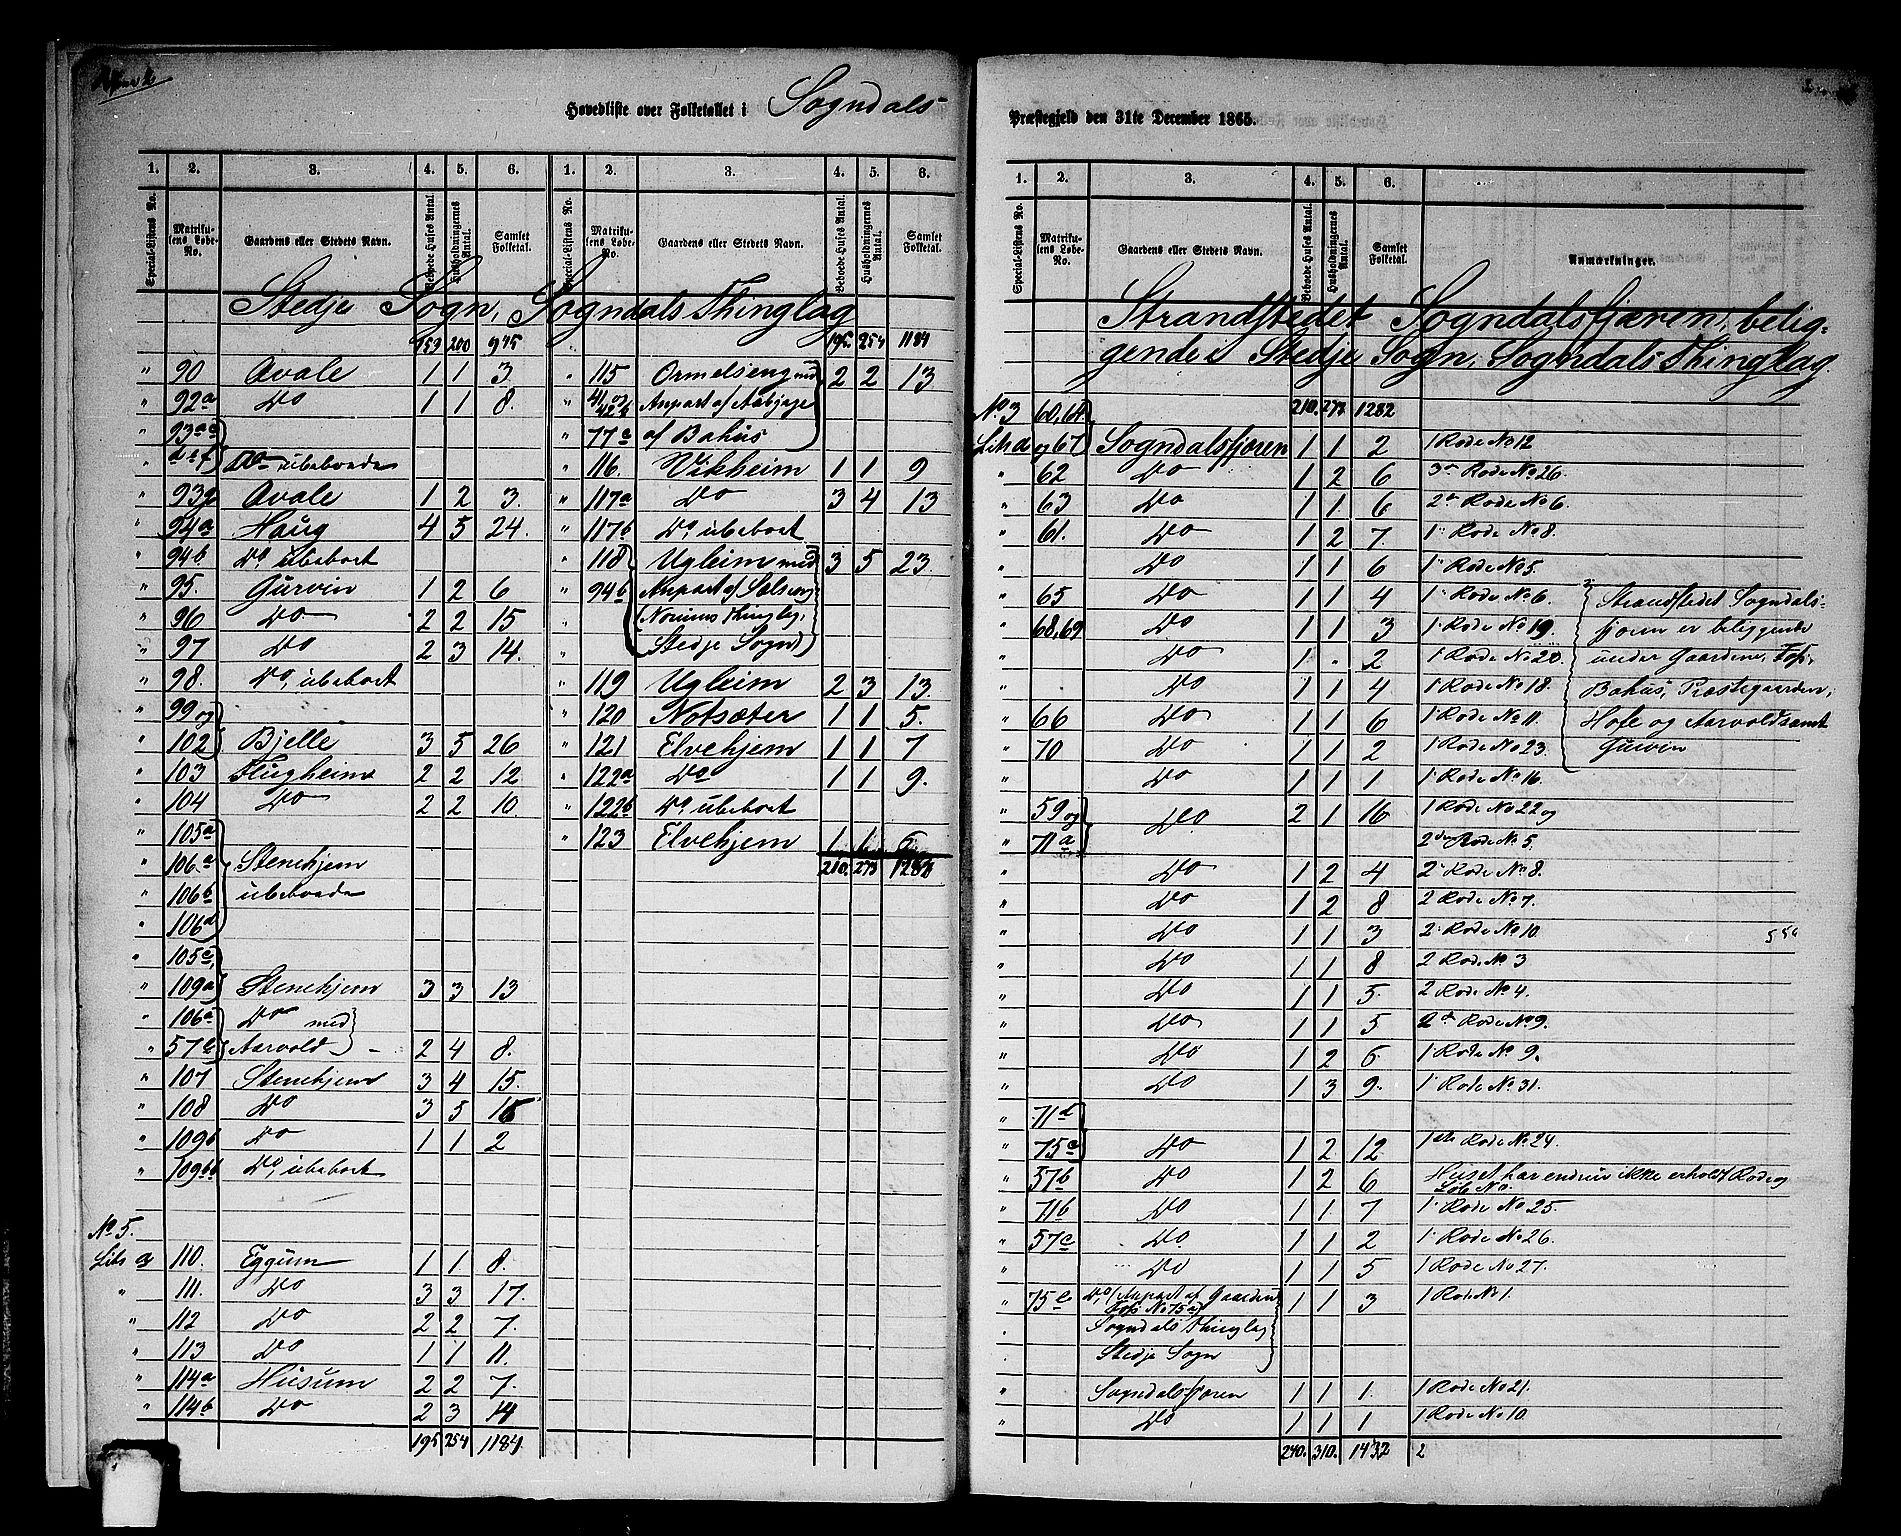 Hovedliste over Folketallet i Sogndals-
1. 2. 3. 4. 5. 6. 1. 2. 3. 4. 5. 6.
Special-Listens No. Matrikulens Løbe-No. Gaardens eller Stedets Navn. Beboede Huses Antal. Husholdningernes Antal. Samlet Folketal. Special-Listens No. Matrikulens Løbe-No. Gaardens eller Stedets Navn. Beboede Huses Antal. Husholdningernes Antal. Samlet Folketal.
Stedje Sogn, Sogndals Thinglag
159 200 975
" 90 Avale 1 1 3.
" 92a Do 1 1 8.
" 93a
" Do ubeboede
" 93g Avale 1 2 3.
" 94a Haug 4 5 24.
" 94b Do, ubeboet
" 95. Gurvin 1 2 6
" 96 Do 2 2 15
" 97 Do 2 3 14.
" 98. Do, ubeboet
" 99 og
" 102 Bjelle 3 5 26
" 103 Flugheim 2 2 12
" 104 Do 2 2 10.
" 105a
" 106a Stenehjem
" 106b ubeboede
" 106d
" 105c,
" 109a Stenehjem 3 3 13
" 106a Do med
" 57e Aarvold - 2 4 8.
" 107 Stenehjem 3 4 15.
" 108 Do 3 5 16
" 109b Do 1 1 2
" 109bb Do, ubeboet
No 5.
Litr a 110. Eggum 1 1 8.
" 111. Do 3 3 17.
" 112 Do 2 2 7.
" 113 Do 1 1 11.
" 114a Husum 2 2 7.
" 114b Do 2 3 14
195 254 1184
195. 254 1184
" 115 Ormelseng med 2 2 13
" 41 og 42b Anpart af Aabjøge
" 77c af Bahus
" 116. Vikheim 1 1 9
" 117a Do 3 4 13
" 117b Do, ubeboet
" 118 Ugleim med 3 5 23
" 94b Anpart af Sølseng
" (Norums Thinglag,
" Stedje Sogn)
" 119 Ugleim 2 3 13.
" 120 Notsæter 1 1 5.
" 121 Elvehjem 1 1 7
" 122a Do 1 1 9.
" 122b Do, ubeboet
" 123 Elvehjem 1 1 6
210. 273 1282
Præstegjeld den 31te December 1865.
1. 2. 3. 4. 5. 6.
Special-Listens No. Matrikulens Løbe-No. Gaardens eller Stedets Navn. Beboede Huses Antal. Husholdningernes Antal. Samlet Folketal. Anmærkninger.
Strandstedet Sogndalsfjæren, belig-
gende i Stedje Sogn, Sogndals Thinglag.
No 3 60, 64 210. 273 1282
Litr a og 67 Sogndalsfjøren 1 1 2 1 Rode No 12
" 62 Do 1 2 6 3 Rode No 26.
" 63 Do 1 1 6 2 Rode No 6.
" 61. Do 1 2 7 1 Rode No 8.
" Do 1 1 6 1 Rode No 5.
" 65 Do 1 1 4 1 Rode No 6. Strandstedet Sogndals-
" 68, 69 Do 1 1 3 1 Rode No 19. fjøren er beliggende
" Do 1 - 2 1 Rode No 20. under Gaardene, Foss,
" Do 1 1 4 1 Rode No 18. Bahus, Præstegaarden,
" 66 Do 1 1 6 1 Rode No 11. Hofe og Aarvold samt
" 70 Do 1 1 2 1 Rode No 23. Gurvin
" Do 1 1 1 1 Rode No 16.
" 59 og Do 2 1 16 1 Rode No 22 og
" 71a 2den Rode No 5.
" Do 1 2 4 2 Rode No 8.
" Do 1 2 8 2 Rode No 7.
" Do 1 1 3 2 Rode No 10.
" Do 1 1 8 2 Rode No 3
" Do 1 1 5. 2 Rode No 4.
" Do 1 1 5 2d Rode No 9.
" Do 1 2 6. 1 Rode No 9.
" Do 1 3 9. 1 Rode No 31.
" 71d
" 75c Do 1 2 12 1ste Rode No 24.
" 57b Do 1 2 6 Huset har endnu ikke erholdt Rode og
Løb No.
" 71b Do 1 1 7 1 Rode No 25.
" 57c Do 1 1 2 1 Rode No 26.
" Do 1 1 5 1 Rode No 27.
" 75e Do, (Anpart af Gaarden 1 1 3 1 Rode No 1.
Foss No 75a)
Sogndals Thinglag
Stedje Sogn
" Sogndalsfjøren 1 1 1. 1 Rode No 21.
" Do 1 1 1 1 Rode No 10.
240. 310. 1432 2